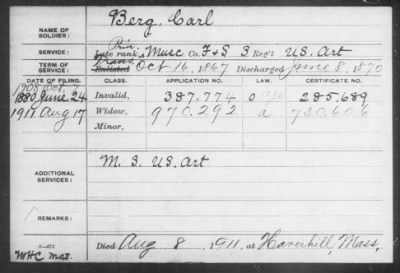 NAME OF SOLDIER: Berg, Carl
Prin.
SERVICE: Late rank, Musc Co. F+S 3 Reg't U.S. Art
Trans.
TERM OF SERVICE: Enlisted Oct 16, 1867 Discharged June 8, 1870
DATE OF FILING. CLASS. APPLICATION NO. CERTIFICATE NO.
1908 Oct 7
1880 June 24 Invalid, 387.774 O age 285.689
1917 Aug 17 Widow, 970.292 a 730.606
Minor,
ADDITIONAL SERVICES: M. S. U.S. Art
REMARKS:
Died Aug 8, 1911, at Haverhill, Mass,
MHC Mat.